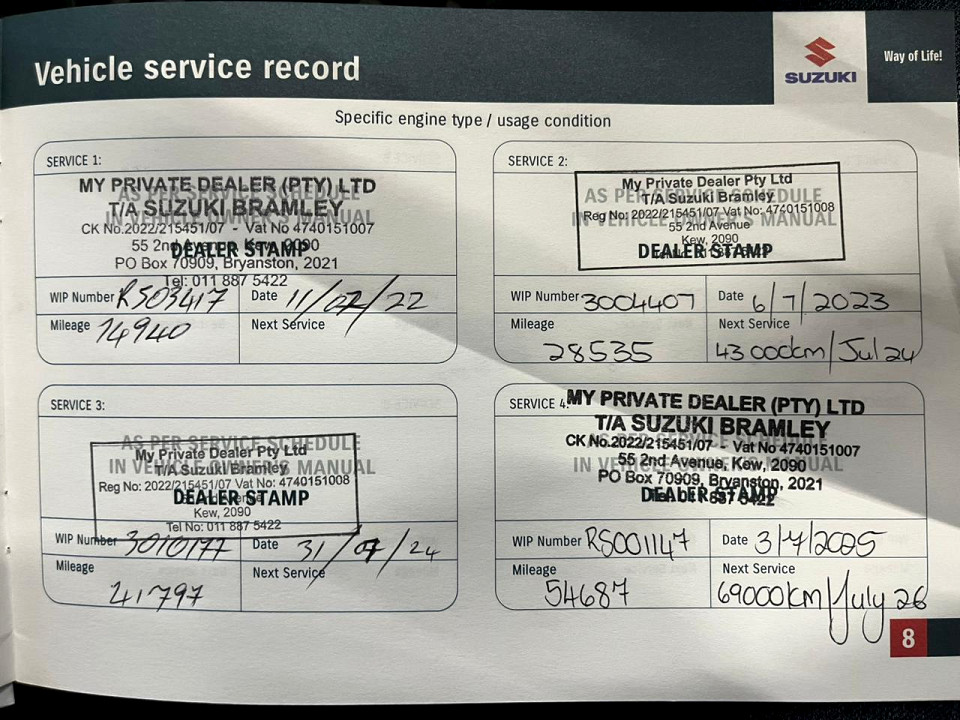 Vehicle service record
SUZUKI
Way of Life!
Specific engine type / usage condition
SERVICE 1:
AS PER SERVICE SCHEDULE
IN VEHICLE OWNER'S MANUAL
MY PRIVATE DEALER (PTY) LTD
T/A SUZUKI BRAMLEY
CK No.2022/215451/07 - Vat No 4740151007
55 2nd Avenue, Kew, 2090
DEALER STAMP
PO Box 70909, Bryanston, 2021
Tel: 011 887 5422
WIP Number RS03417 Date
Mileage 14940 Next Service
SERVICE 2:
AS PER SERVICE SCHEDULE
IN VEHICLE OWNER'S MANUAL
My Private Dealer Pty Ltd
T/A Suzuki Bramley
Reg No: 2022/215451/07 Vat No: 4740151008
55 2nd Avenue
Kew, 2090
DEALER STAMP
WIP Number 3004407 Date 6/7/2023
Mileage 28535 Next Service 43 000km/Jul 24
SERVICE 3:
AS PER SERVICE SCHEDULE
IN VEHICLE OWNER'S MANUAL
My Private Dealer Pty Ltd
T/A Suzuki Bramley
Reg No: 2022/215451/07 Vat No: 4740151008
DEALER STAMP
Kew, 2090
Tel No: 011 887 5422
WIP Number 3010177 Date 31/07/24
Mileage 41797 Next Service
SERVICE 4:
AS PER SERVICE SCHEDULE
IN VEHICLE OWNER'S MANUAL
MY PRIVATE DEALER (PTY) LTD
T/A SUZUKI BRAMLEY
CK No.2022/215451/07 - Vat No 4740151007
55 2nd Avenue, Kew, 2090
PO Box 70909, Bryanston, 2021
DEALER STAMP
WIP Number RS001147 Date 3/7/2025
Mileage 54687 Next Service 69000km/July 26
8